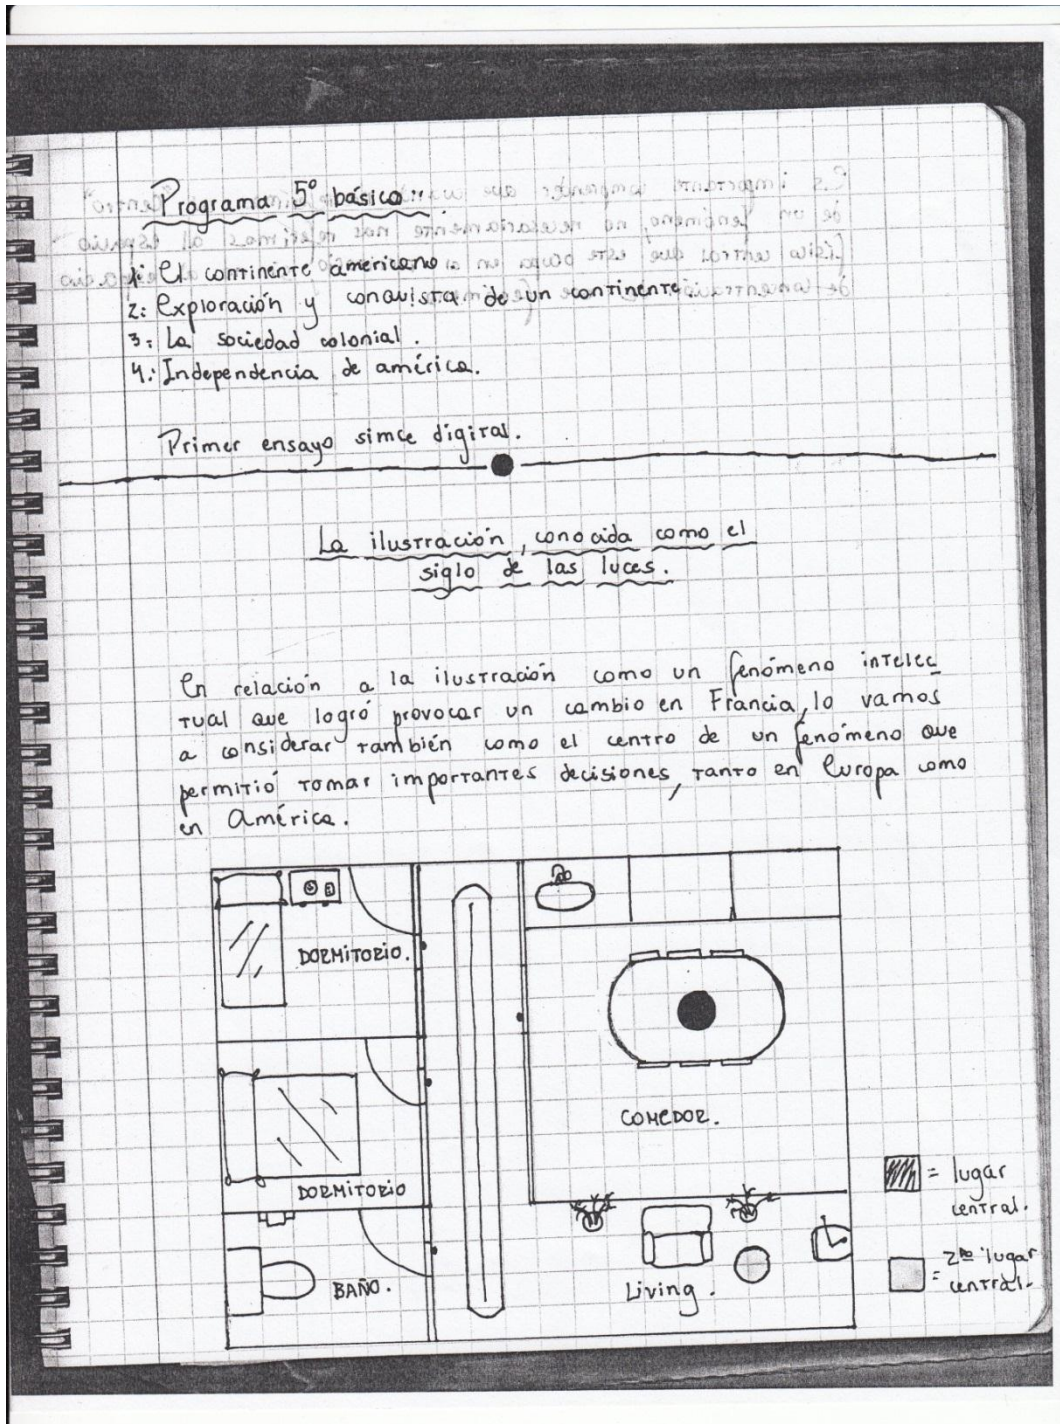 Programa 5º básico:
1: El continente americano
2: Exploración y conquista de un continente
3: La sociedad colonial.
4: Independencia de américa.
Primer ensayo simce digital.
La ilustración, conocida como el
siglo de las luces.
En relación a la ilustración como un fenómeno intelec
tual que logró provocar un cambio en Francia, lo vamos
a considerar también como el centro de un fenómeno que
permitió tomar importantes decisiones, tanto en Europa como
en América.
DORMITORIO.
COMEDOR.
DORMITORIO
BAÑO.
Living.
= lugar
central.
= 2do lugar
central.